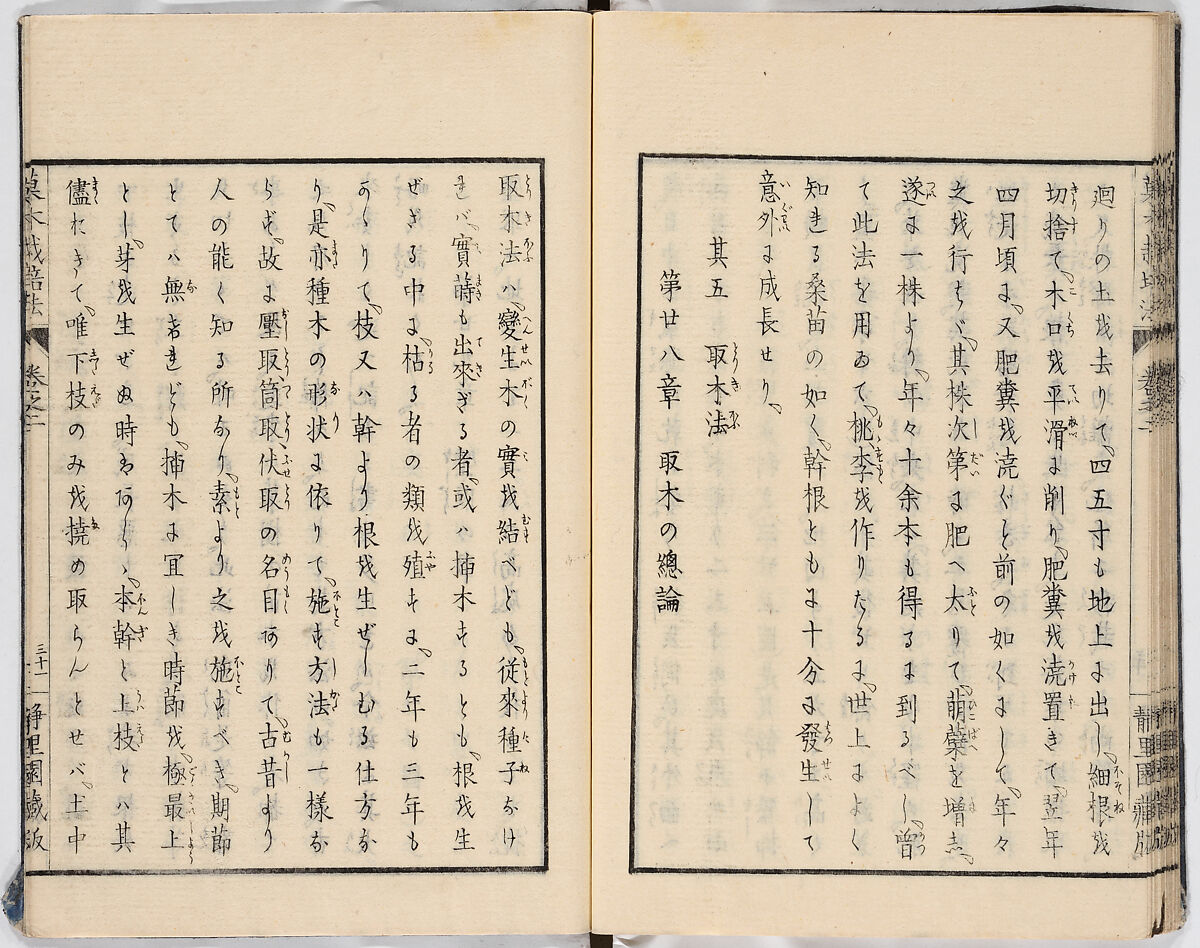 廻りの土を去りて、四五寸も地上に出し、細根を
切捨て、木口を平滑に削り、肥糞を澆置きて、翌年
四月頃に、又肥糞を澆ぐと前の如くにして、年々
之を行らバ、其株次第に肥へ太りて、萠蘗を増志、
遂に一株より、年々十余本も得るに到るべし、曾
て此法を用ゐて、桃、李を作りたるに、世上によく
知れる桑苗の如く、幹根ともに十分に發生して
意外に成長せり、
其五 取木法
第廿八章 取木の總論
菓木栽培法
巻之二
三十二
靜里園藏版
取木法ハ、變生木の實を結べども、従來種子なけ
れバ、實蒔も出來ざる者、或ハ揷木するとも、根を生
ぜざる中に、枯る者の類を殖すに、二年も三年も
かゝりて、枝又ハ幹より根を生ぜしむる仕方な
り、是亦種木の形状に依りて、施す方法も一様な
らず、故に壓取筒取伏取の名目ありて、古昔より
人の能く知る所なり、素より之を施すべき、期節
とてハ無れども、揷木に宜しき時節を、極最上
とし、芽を生ぜぬ時もあり、本幹と上枝とハ其
儘にきて、唯下枝のみを撓め取らんとせバ、土中